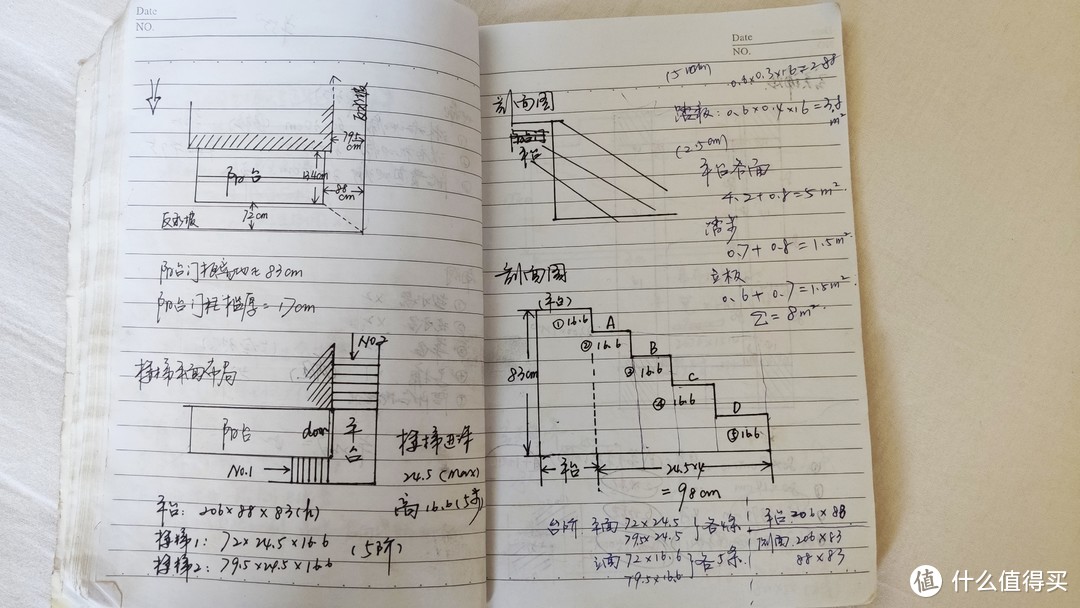 Date
NO.
79.5
cm
阳台
134cm
88
cm
72cm
83cm
阳台门柱框厚=17cm
NO.2
楼梯平面布局
阳台
door
平
台
NO.1
楼梯进深
24.5(max)
高16.6(5步)
平台: 206×88×83(h)
楼梯1: 72×24.5×16.6
(5阶)
楼梯2: 79.5×24.5×16.6
Date
NO.
剖面图
阳台门
平台
0.6×0.3×16=2.88
踏板: 0.6×0.4×16=3.8
m²
(2.5cm)
平台
4.2+0.8=5m²
踏步
0.7+0.8=1.5m²
立板
0.6+0.7=1.5m²
Σ=8m²
剖面图
(平台)
①16.6
A
②16.6
B
③16.6
C
④16.6
D
⑤16.6
83cm
平台
24.5×4
=98cm
台阶 平面 72×24.5
79.5×24.5
各4条
平台 206×88
立面 72×16.6
79.5×16.6
各5条
侧面 206×83
88×83
值 什么值得买